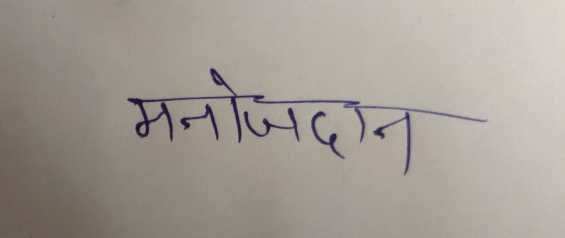 मनोजदान